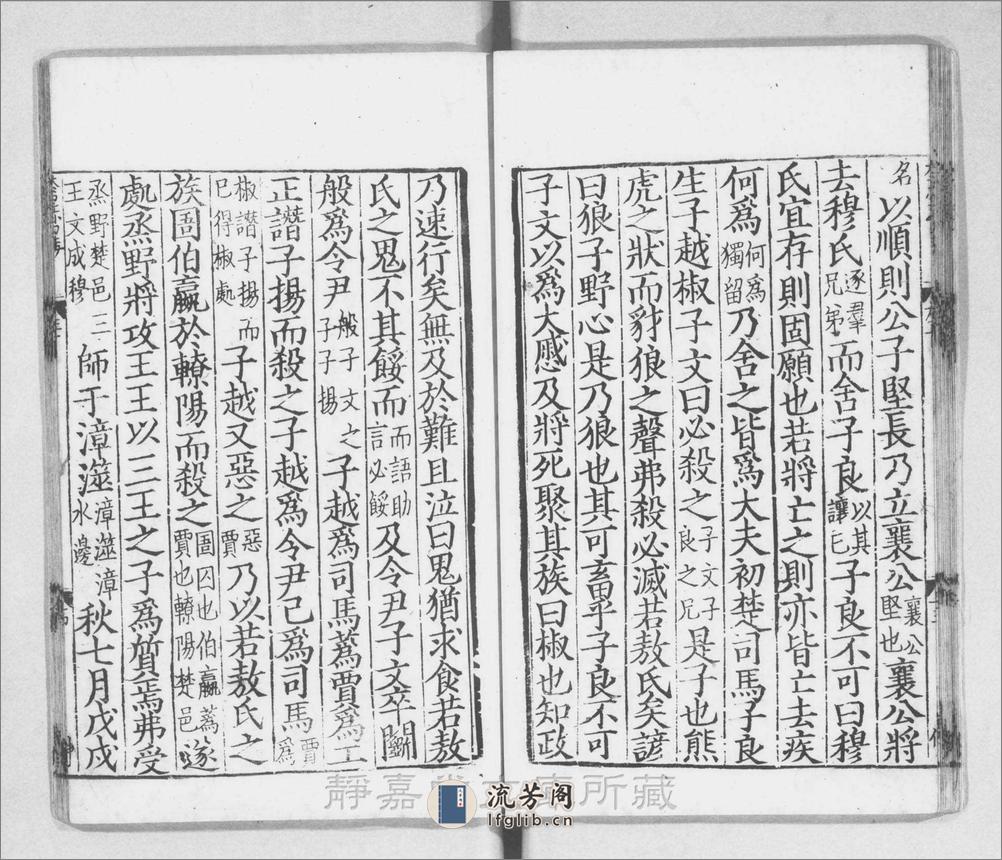 名以順則公子堅長乃立襄公襄公堅也襄公將
去穆氏逐羣兄弟而舍子良以其讓已子良不可曰穆
氏宜存則固願也若將亡之則亦皆亡去疾
何爲何爲獨留乃舍之皆爲大夫初楚司馬子良
生子越椒子文曰必殺之子文子良之兄是子也熊
虎之狀而豺狼之聲弗殺必滅若敖氏矣諺
曰狼子野心是乃狼也其可畜乎子良不可
子文以爲大慼及將死聚其族曰椒也知政
乃速行矣無及於難且泣曰鬼猶求食若敖
氏之鬼不其餒而而語助言必餒及令尹子文卒鬭
般爲令尹般子文之子子揚子越爲司馬蒍賈爲工
正譖子揚而殺之子越爲令尹己爲司馬賈爲
椒譖子揚而已得椒處子越又惡之惡賈乃以若敖氏之
族圄伯嬴於轑陽而殺之圄囚也伯嬴蒍賈也轑陽楚邑遂
處烝野將攻王王以三王之子爲質焉弗受
烝野楚邑三王文成穆師于漳澨漳澨漳水邊秋七月戊戌
靜嘉堂文庫所藏
流芳阁
lfglib.cn